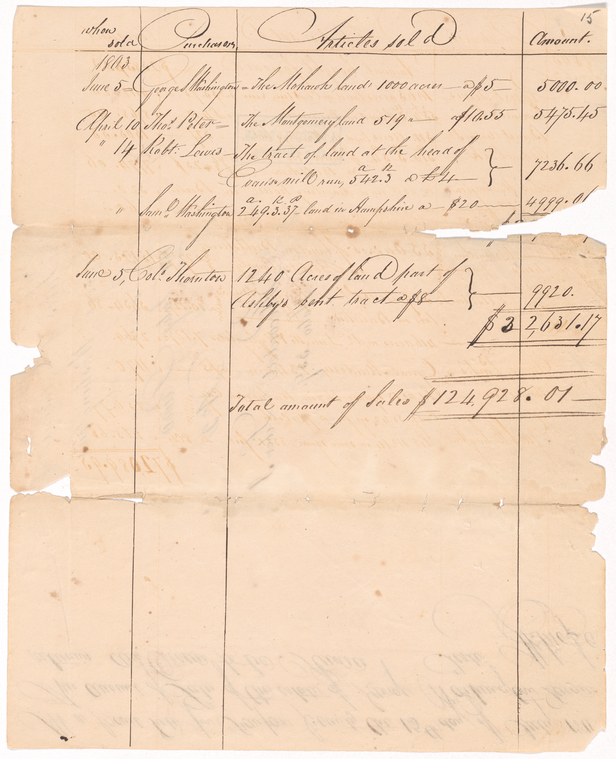 15
when sold Purchasers Articles sold Amount.
1803
June 5 = George Washington = The Mohawk land 1000 acres — a $5 — 5000.00
April 10 Thos. Peter = The Montgomery land 519 a — a $10.55 5475.45
" 14 Robt. Lewis — The tract of land at the head of
Evan's mill run, 542.3 a £4 — 7236.66
" Saml. Washington 249.3.37 land in Hampshire a — $20 — 4999.01
June 5, Colo. Thornton 1240 Acres of land part of
Ashby's bent tract a $8 — 9920.
$32,631.17
Total amount of Sales $124,928.01 —